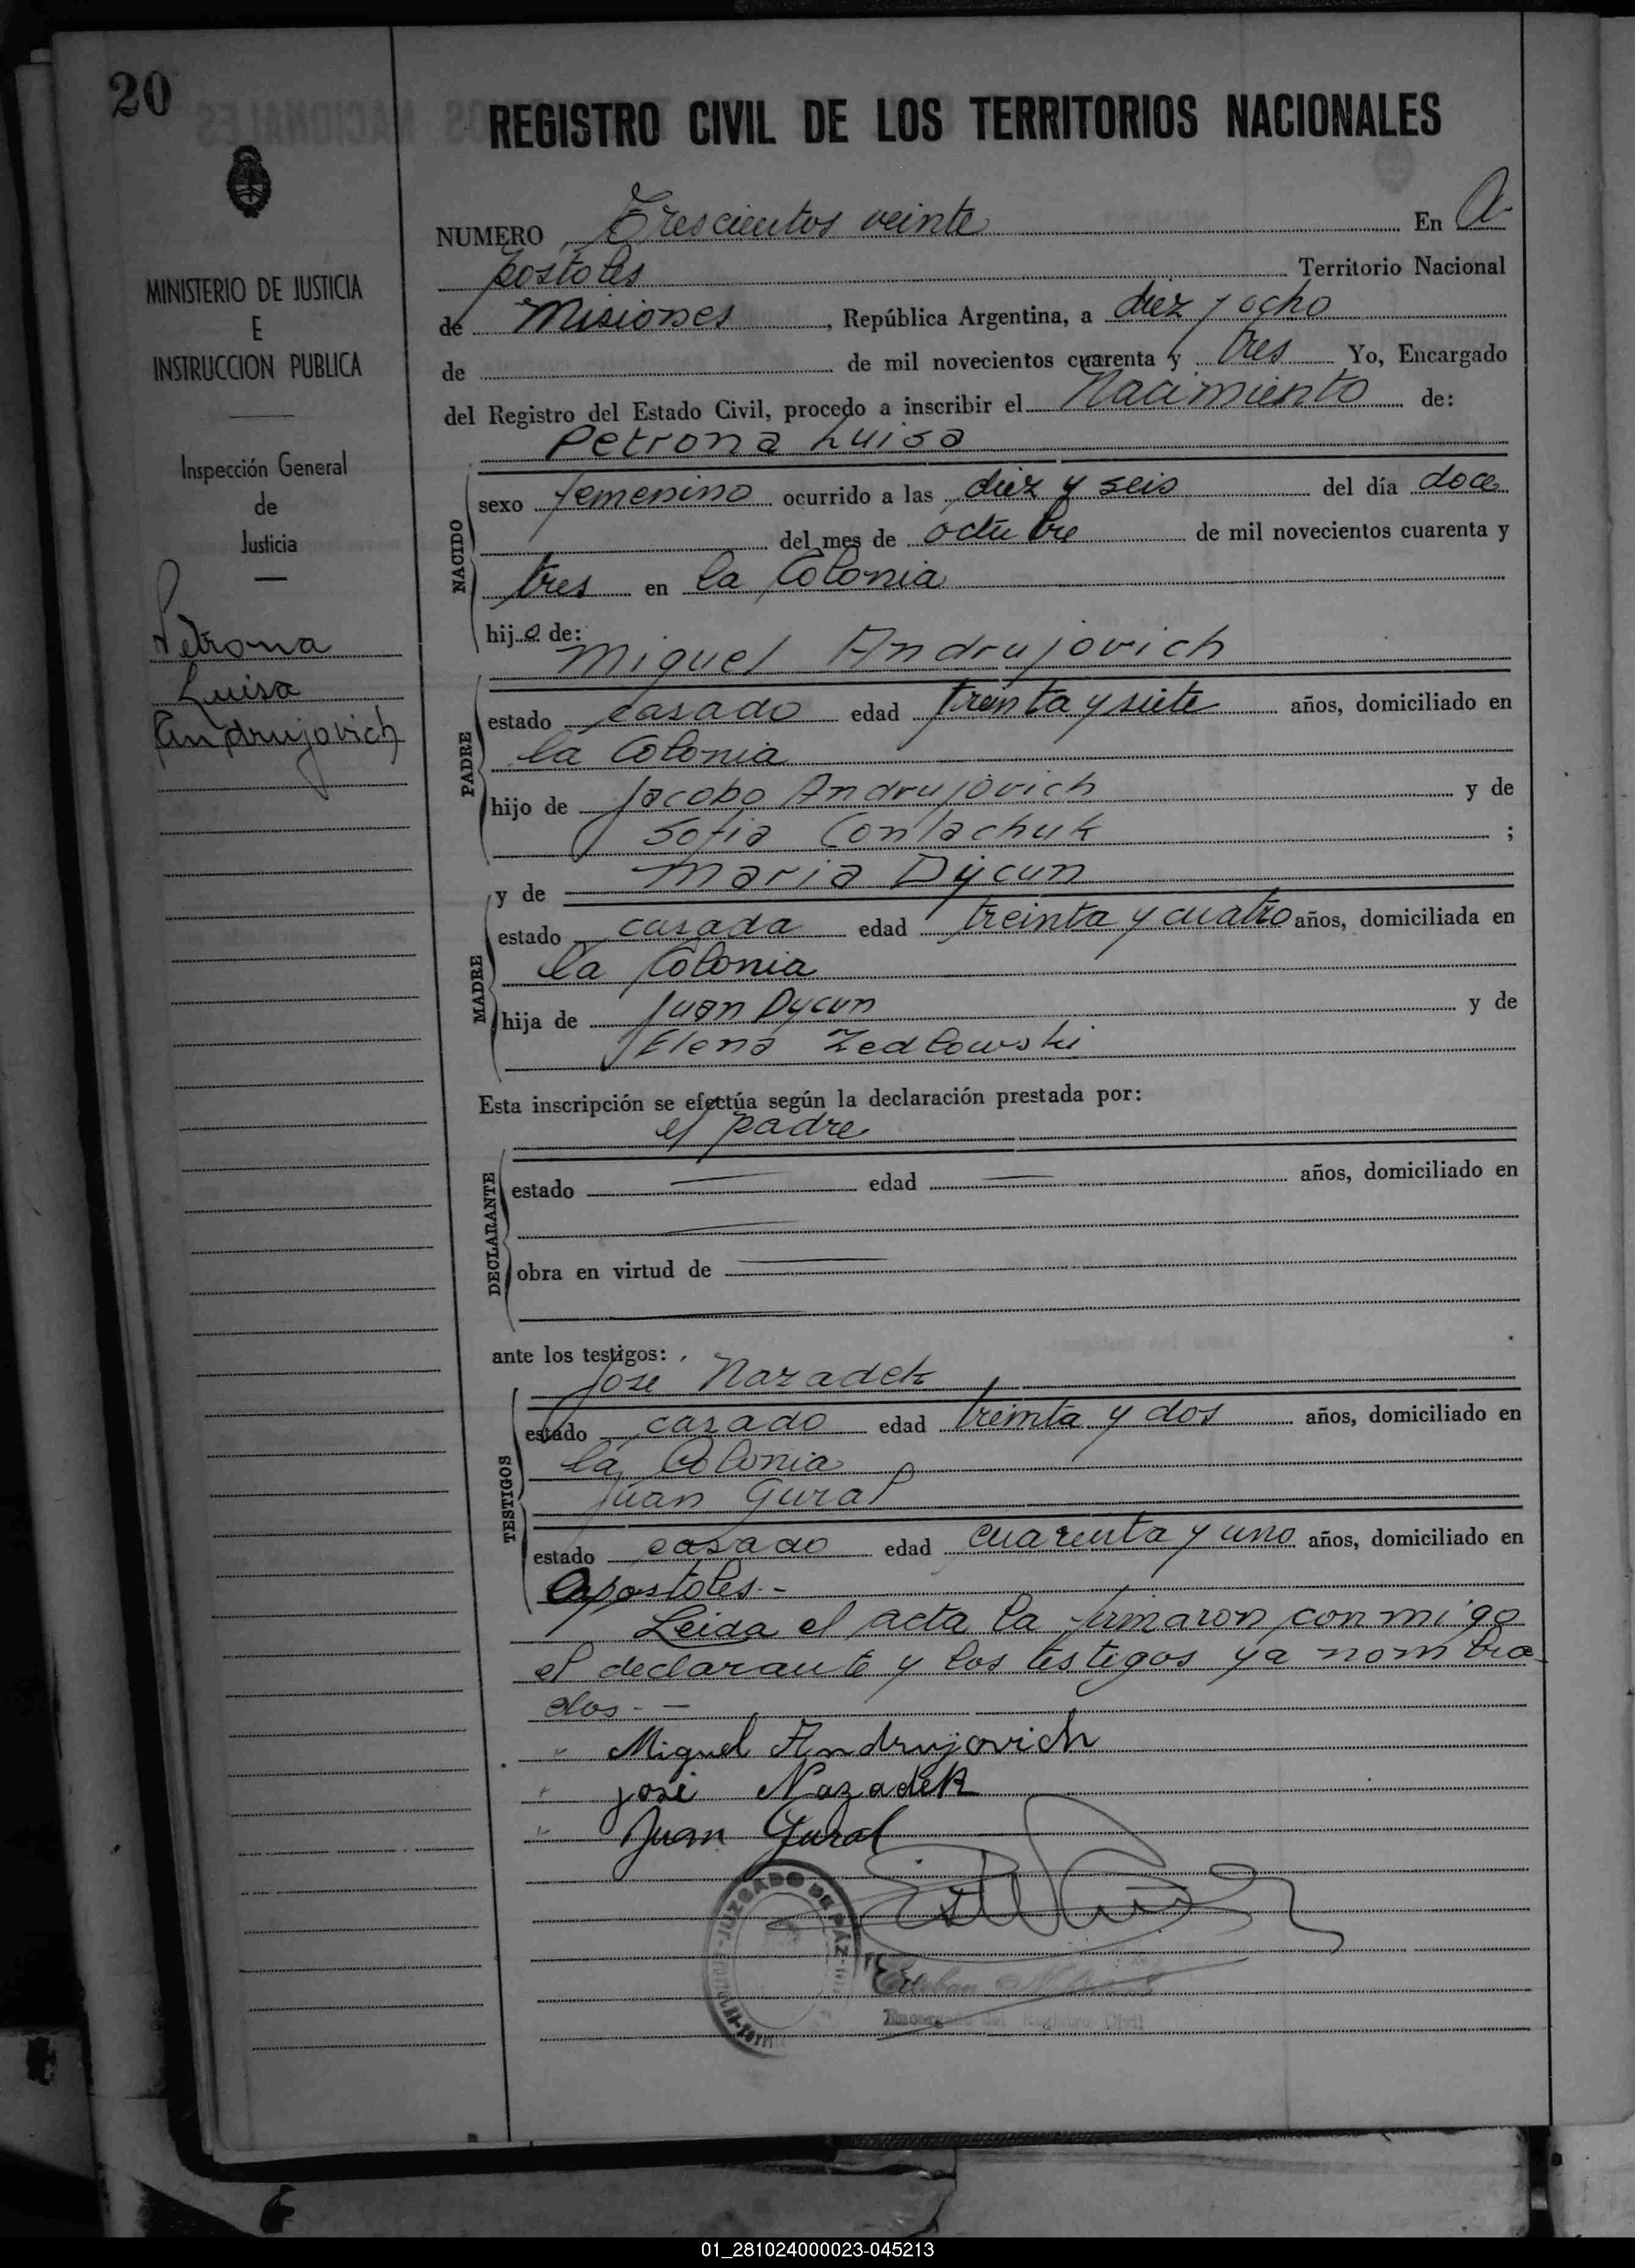 20
REGISTRO CIVIL DE LOS TERRITORIOS NACIONALES
MINISTERIO DE JUSTICIA
E
INSTRUCCION PUBLICA
Inspección General
de
Justicia
Petrona
Luisa
Andrujovich
NUMERO Trescientos veinte En A-
postoles Territorio Nacional
de Misiones, República Argentina, a diez y ocho
de de mil novecientos cuarenta y tres Yo, Encargado
del Registro del Estado Civil, procedo a inscribir el Nacimiento de:
Petrona Luisa
NACIDO
sexo femenino ocurrido a las diez y seis del día doce
del mes de octubre de mil novecientos cuarenta y
tres en la Colonia
hija de:
Miguel Andrujovich
PADRE
estado casado edad treinta y siete años, domiciliado en
la Colonia
hijo de Jacobo Andrujovich y de
Sofia Conlachuk ;
y de Maria Dycun
MADRE
estado casada edad treinta y cuatro años, domiciliada en
la Colonia
hija de Juan Dycun y de
Elena Zedlowski
Esta inscripción se efectúa según la declaración prestada por:
el padre
DECLARANTE
estado edad años, domiciliado en
obra en virtud de
ante los testigos:
Jose Nazadek
TESTIGOS
estado casado edad treinta y dos años, domiciliado en
la Colonia
Juan Gural
estado casado edad cuarenta y uno años, domiciliado en
Apostoles.-
Leida el acta la firmaron conmigo
el declarante y los testigos ya nombra-
dos.-
Miguel Andrujovich
josé Nazadek
Juan Gural
JUZGADO DE PAZ
Esteban
Encargado del Registro Civil
01_281024000023-045213